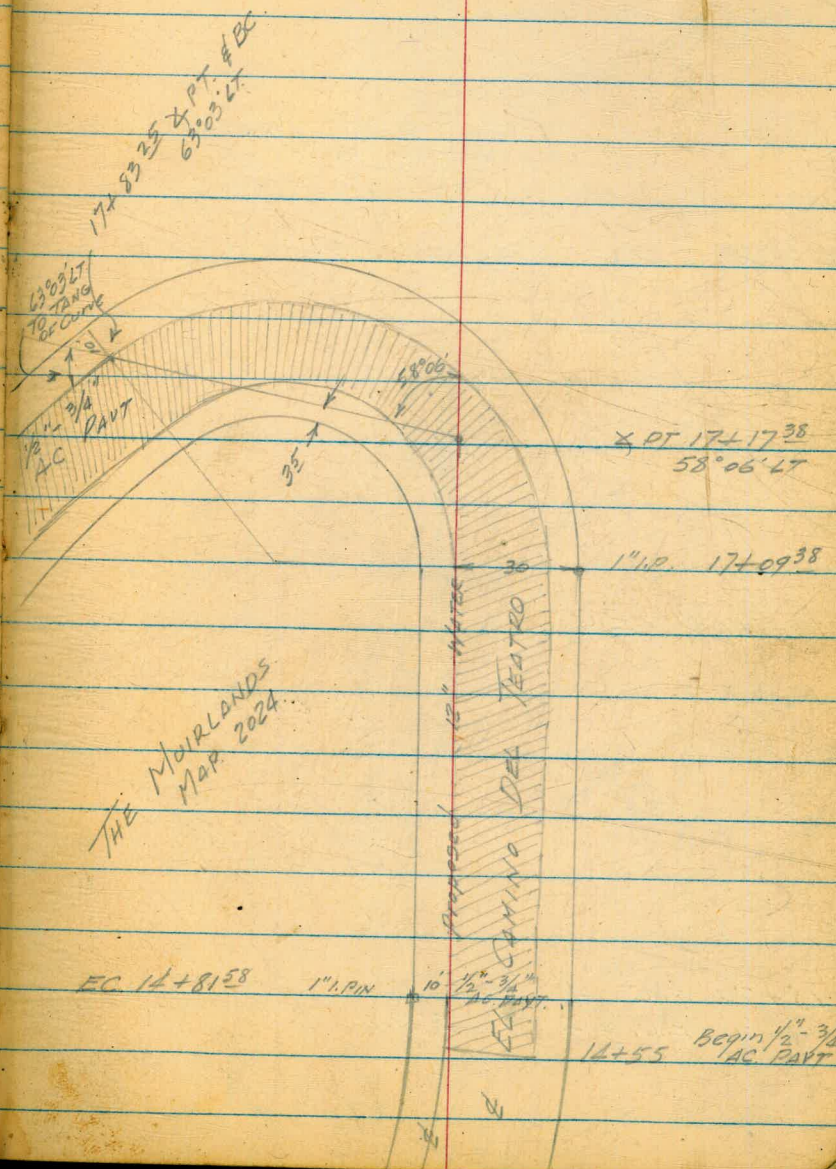 17+83 25 ∡ PT. & BC
63°03' LT.
63°03' LT
TO TANG
OF CURVE
10'
1/2" - 3/4"
AC PAVT
58°06'
35
∡ PT 17+17 38
58°06' LT
30
1" I.P. 17+09 38
THE MUIRLANDS
MAP 2024
Proposed 12" WATER
EL CAMINO DEL TEATRO
EC 14+81 58
1" I. PIN
10'
1/2" - 3/4"
AC PAVT.
14+55
Begin 1/2" - 3/4
AC PAVT
℄
℄